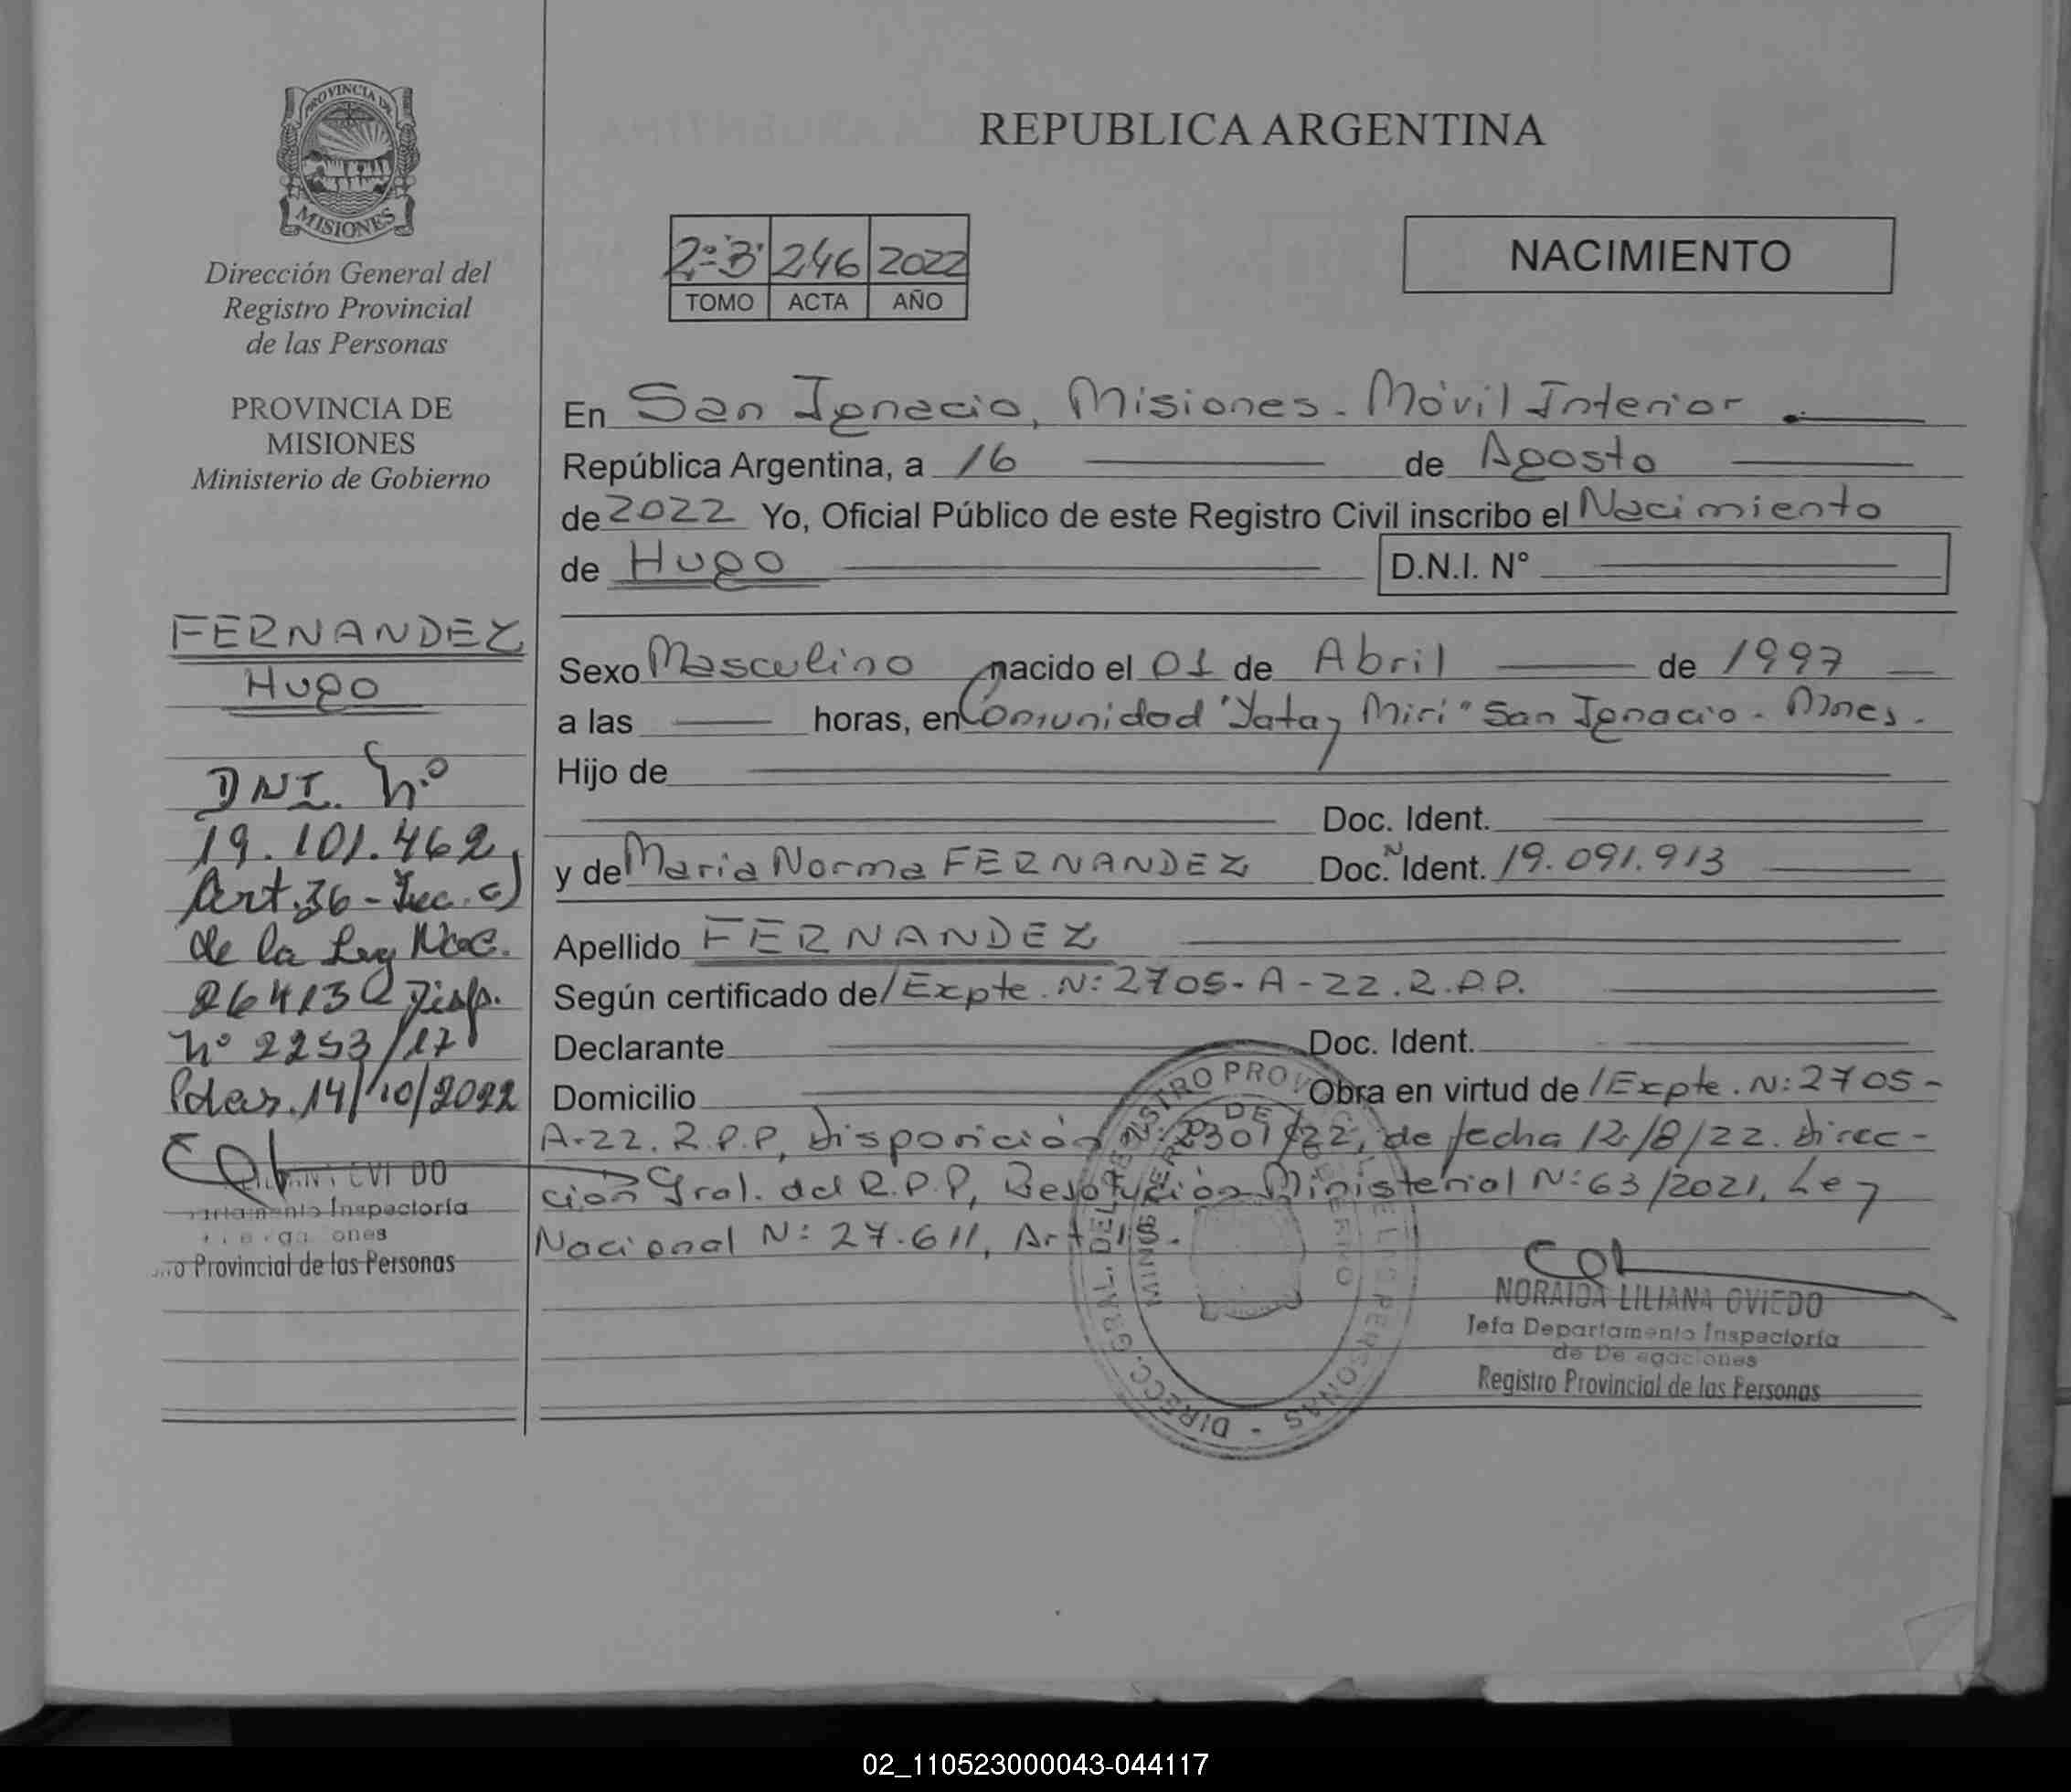 PROVINCIA DE
MISIONES
Dirección General del
Registro Provincial
de las Personas
PROVINCIA DE
MISIONES
Ministerio de Gobierno
FERNANDEZ
Hugo
DNI. Nº
19.101.462
Art. 36 - Inc. c)
de la Ley Nac.
26413 Disp.
Nº 2253/17
Pdas. 14/10/2022
Inspectoría
ones
Provincial de las Personas
REPUBLICA ARGENTINA
2º "B" 246 2022
TOMO ACTA AÑO
NACIMIENTO
En San Ignacio, Misiones - Móvil Interior.
República Argentina, a 16 de Agosto
de 2022 Yo, Oficial Público de este Registro Civil inscribo el Nacimiento
de Hugo D.N.I. Nº
Sexo Masculino nacido el 01 de Abril de 1997
a las horas, en Comunidad "Yatay Miri" San Ignacio - Mnes.
Hijo de
Doc. Ident.
y de Maria Norma FERNANDEZ Doc. N Ident. 19.091.913
Apellido FERNANDEZ
Según certificado de/Expte. N: 2705 - A - 22. R.P.P.
Declarante Doc. Ident.
Domicilio Obra en virtud de /Expte. N: 2705 -
A-22. R.P.P, Disposición N: 2301/22, de fecha 12/8/22. Direc -
ción Gral. del R.P.P, Resolución Ministerial N: 63/2021, Ley
Nacional N: 27.611, Art
NORAIDA LILIANA OVIEDO
Jefa Departamento Inspectoría
de Delegaciones
Registro Provincial de las Personas
DIRECC. GRAL. DEL REGISTRO PROVINCIAL DE LAS PERSONAS -
MINISTERIO DE GOBIERNO
02_110523000043-044117